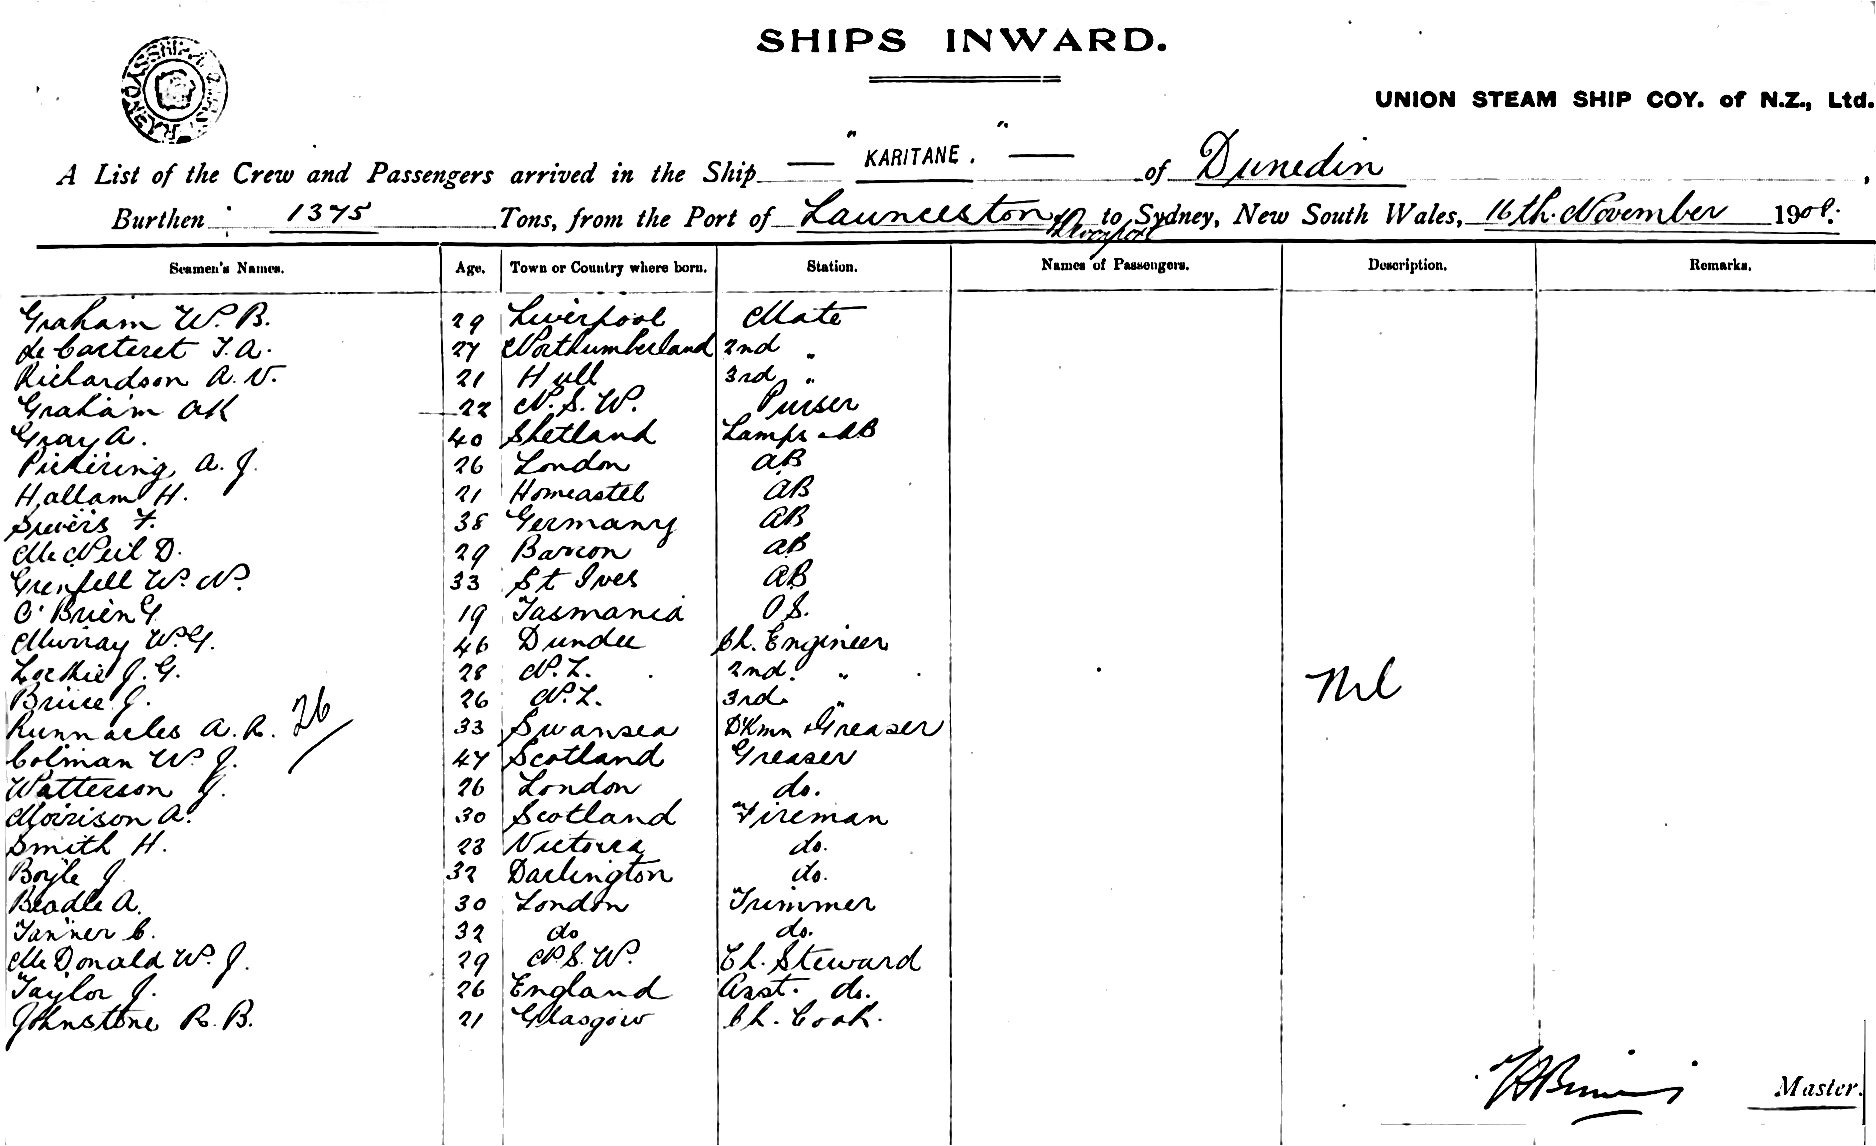 SHIPS INWARD.
UNION STEAM SHIP COY. of N.Z., Ltd.
A List of the Crew and Passengers arrived in the Ship "KARITANE." of Dunedin,
Burthen 1375 Tons, from the Port of Launceston to Sydney, New South Wales, 16th November 190
Devonport
Seamen's Names. Age. Town or Country where born. Station. Names of Passengers. Description. Remarks.
Graham W. B. 29 Liverpool Mate
Le Carteret T. A. 27 Northumberland 2nd "
Richardson A. V. 21 Hull 3rd "
Graham AK 22 N. S. W. Purser
Gray A. 40 Shetland Lamps & AB
Pickering, A. J. 26 London AB
Hallam H. 21 Horncastel AB
Sievers F. 38 Germany AB
McNeil D. 29 AB
Grenfell W. N. 33 St Ives AB
O'Brien G 19 Tasmania O S.
Murray W. G. 46 Dundee Ch. Engineer
Lockie J. G. 28 N. Z. 2nd. " Nil
Bruce J. 26 N. Z. 3rd. "
Runnacles A. R. 26 33 Swansea Dkmn & Greaser
Colman W. J. 47 Scotland Greaser
Watterson J. 26 London do.
Morrison A. 30 Scotland Fireman
Smith H. 23 Victoria do.
Boyle J. 32 Darlington do.
Beadle A. 30 London Trimmer
Tanner C. 32 do do.
McDonald W. J. 29 N. S. W. Ch. Steward
Taylor J. 26 England Asst. do.
Johnstone R. B. 21 Glasgow Ch. Cook.
Master.